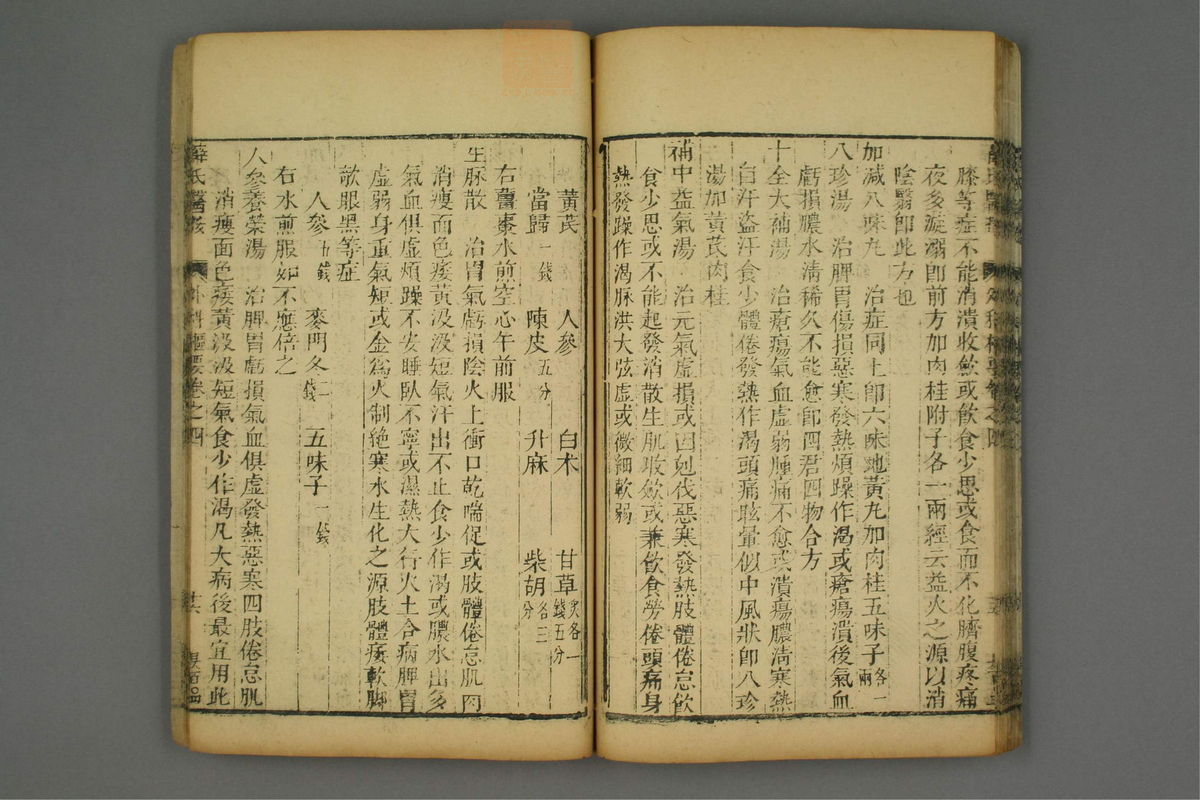 膝等症不能消潰收斂或飲食少思或食而不化臍腹疼痛
夜多漩溺即前方加肉桂附子各一兩經云益火之源以消
陰翳即此方也
加減八味丸 治症同上即六味地黃丸加肉桂五味子各一兩
八珍湯 治脾胃傷損惡寒發熱煩躁作渴或瘡瘍潰後氣血
虧損膿水清稀久不能愈即四君四物合方
十全大補湯 治瘡瘍氣血虛弱腫痛不愈或潰瘍膿清寒熱
自汗盜汗食少體倦發熱作渴頭痛眩暈似中風狀即八珍
湯加黃芪肉桂
補中益氣湯 治元氣虛損或因剋伐惡寒發熱肢體倦怠飲
食少思或不能起發消散生肌收斂或兼飲食勞倦頭痛身
熱發躁作渴脉洪大弦虛或微細軟弱
黃芪 人參 白术 甘草炙各一錢五分
當歸一錢 陳皮五分 升麻 柴胡各三分
右薑棗水煎空心午前服
生脉散 治胃氣虧損陰火上衝口乾喘促或肢體倦怠肌肉
消瘦面色痿黃汲汲短氣汗出不止食少作渴或膿水出多
氣血俱虛煩躁不安睡臥不寧或濕熱大行火土合病脾胃
虛弱身重氣短或金為火制絕寒水生化之源肢體痿軟脚
欹眼黑等症
人參五錢 麥門冬二錢 五味子一錢
右水煎服如不應倍之
人參養榮湯 治脾胃虧損氣血俱虛發熱惡寒四肢倦怠肌
消瘦面色痿黃汲汲短氣食少作渴凡大病後最宜用此
薛氏醫案 外科樞要卷之四